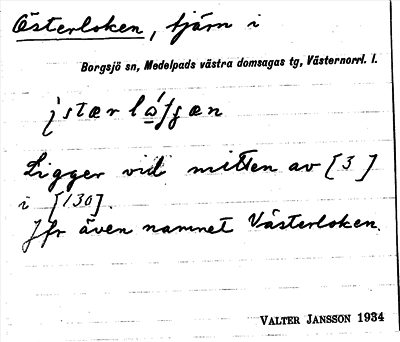 Österloken, tjärn i
Borgsjö sn, Medelpads västra domsagas tg, Västernorrl. l.
Ligger vid mitten av [3]
i [130].
Jfr även namnet Västerloken.
VALTER JANSSON 1934